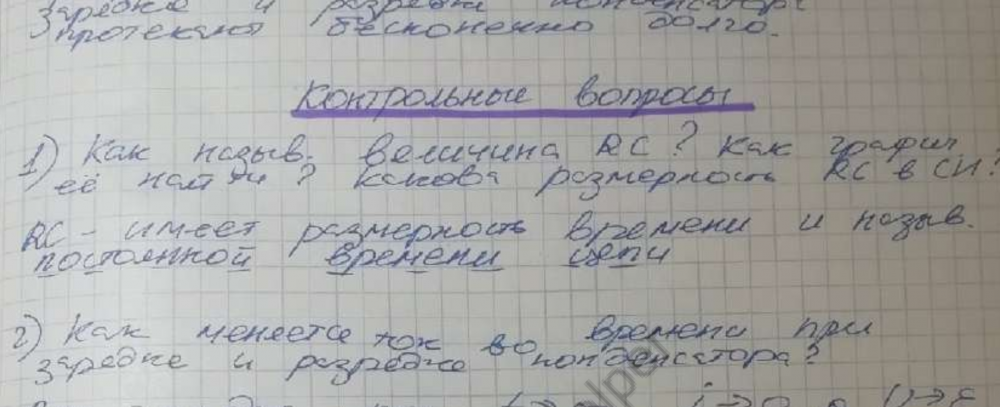 зарядке и разрядки конденсатора
протекают бесконечно долго.
Контрольные вопросы
1) Как назыв. величина RC? Как график
её найти? Какова размерность RC в СИ?
RC - имеет размерность времени и назыв.
постоянной времени цепи
2) Как меняется ток во времени при
зарядке и разрядке конденсатора?